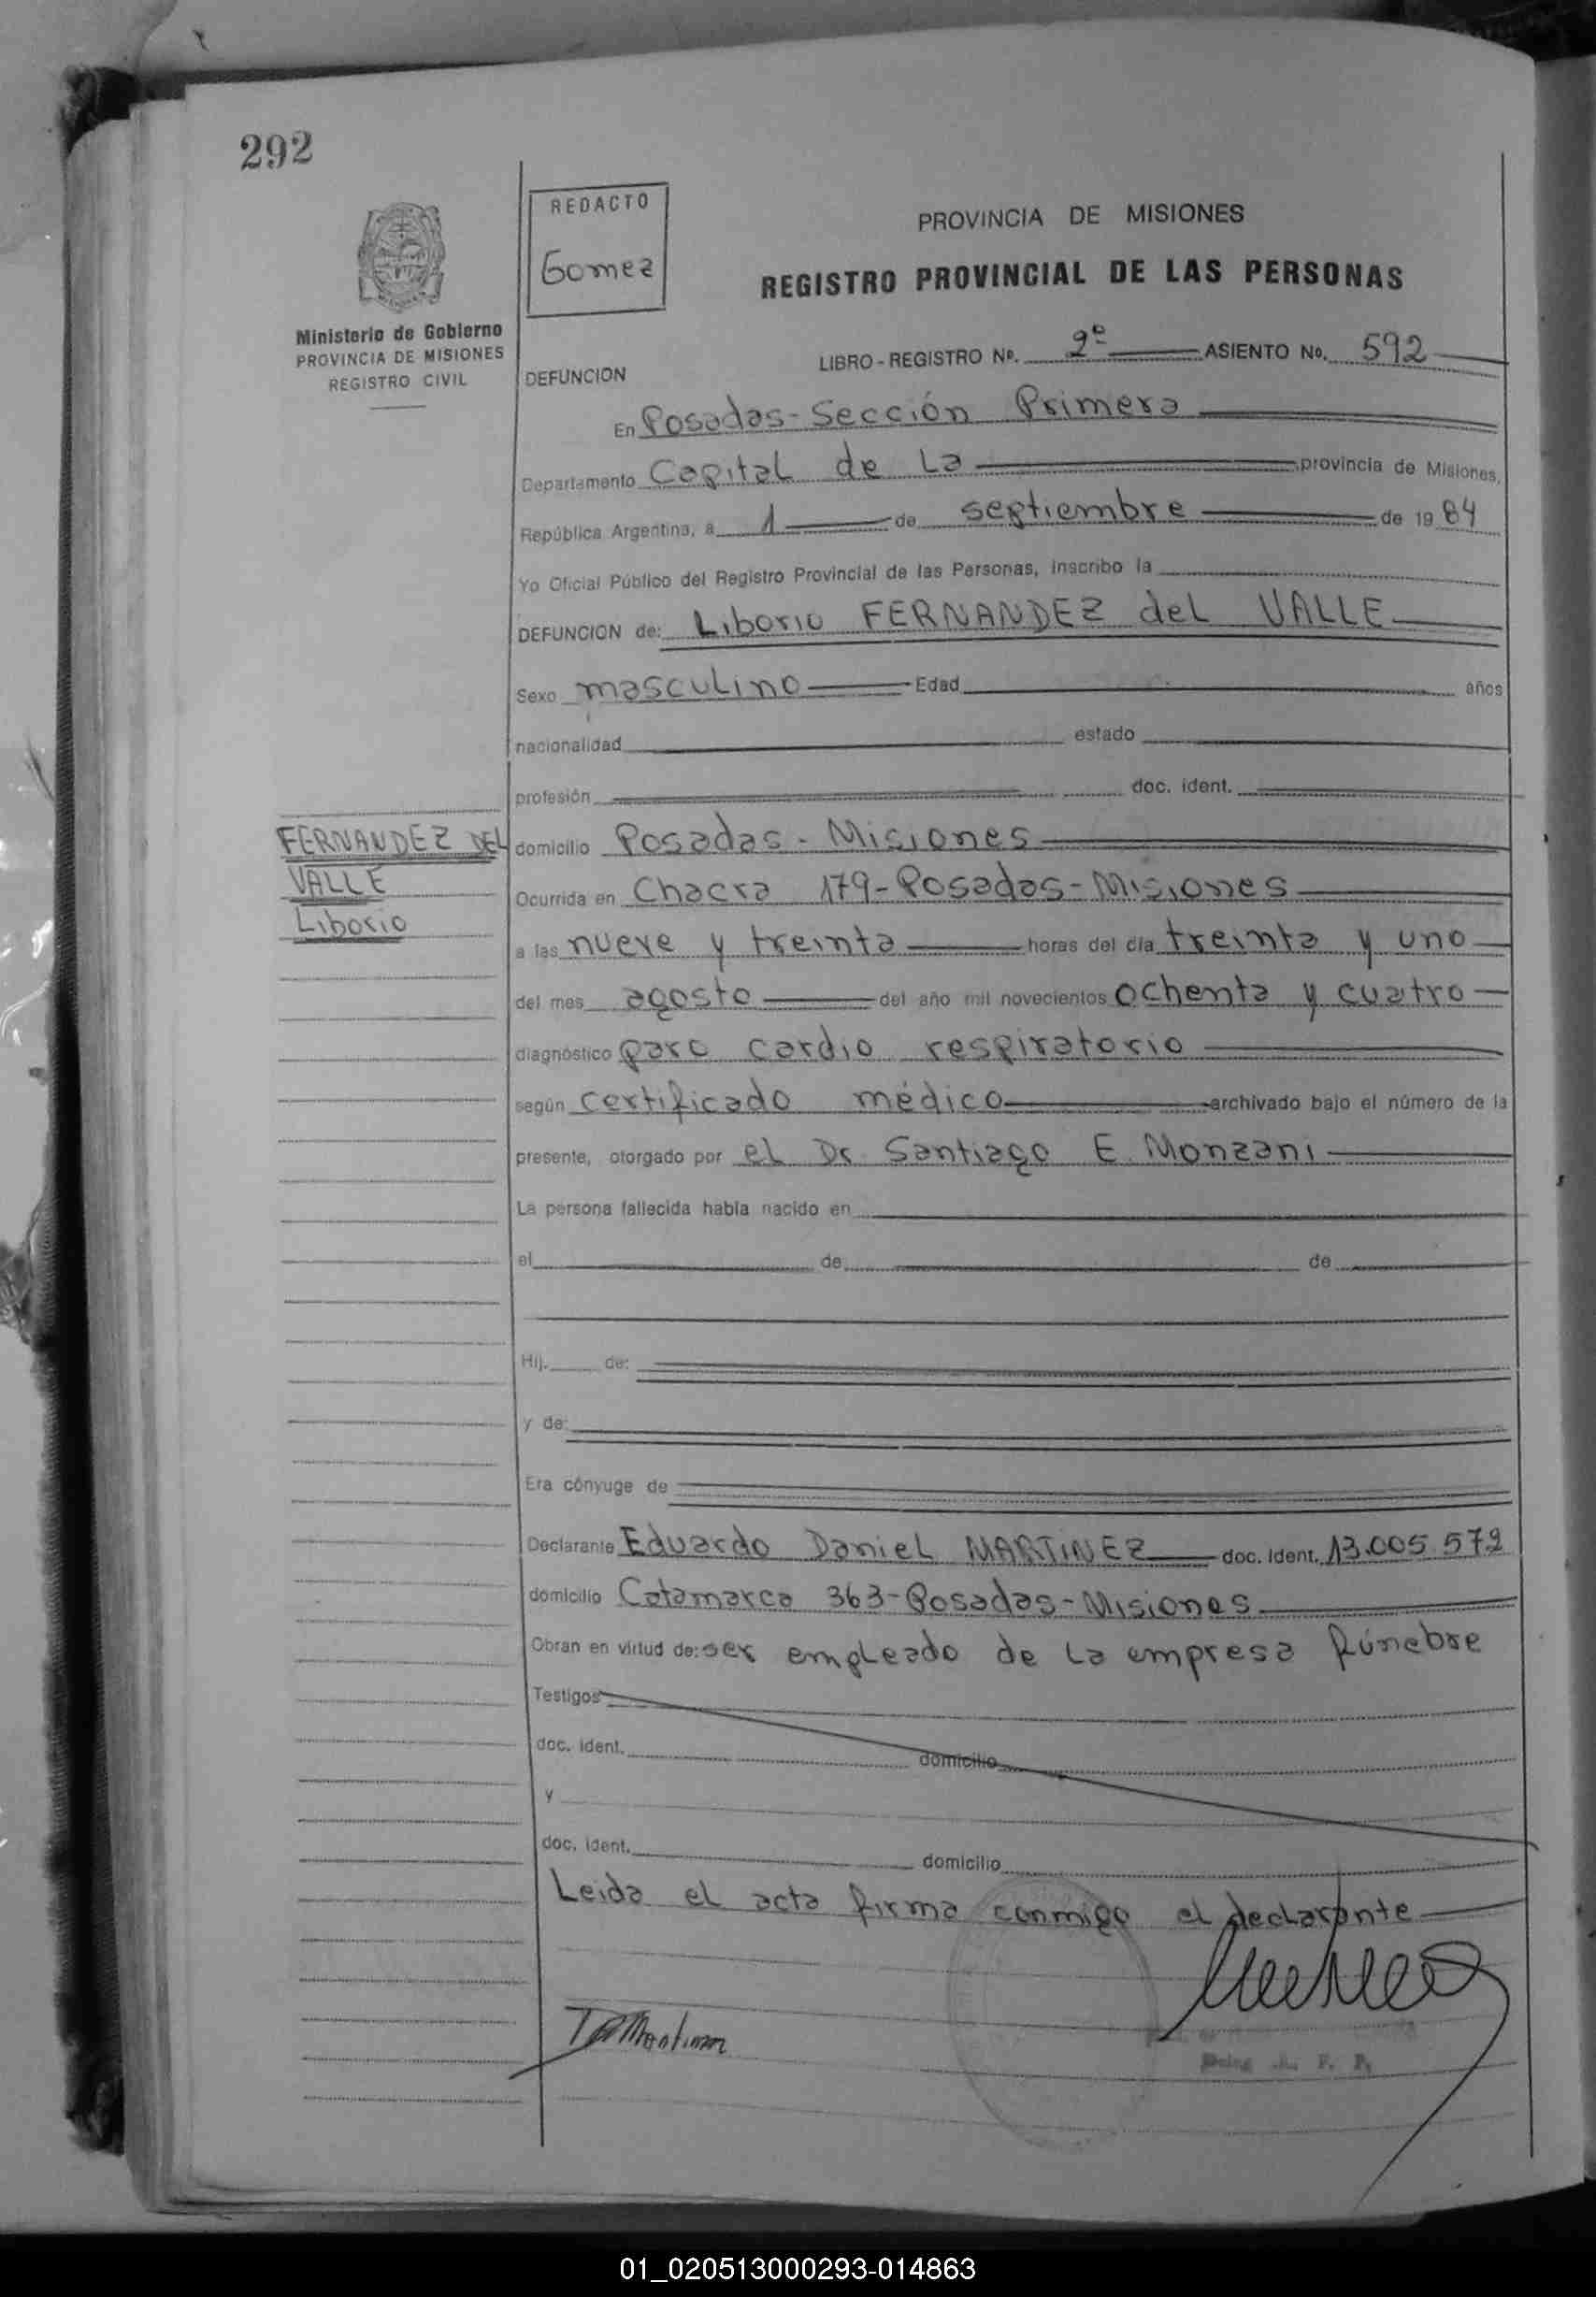 292
REDACTO
Gomez
PROVINCIA DE MISIONES
REGISTRO PROVINCIAL DE LAS PERSONAS
Ministerio de Gobierno
PROVINCIA DE MISIONES
REGISTRO CIVIL
LIBRO - REGISTRO Nº. 2º ASIENTO No. 592
DEFUNCION
En Posadas - Sección Primera
Departamento Capital de La provincia de Misiones,
República Argentina, a 1 de septiembre de 1984
Yo Oficial Público del Registro Provincial de las Personas, inscribo la
DEFUNCION de: Liborio FERNANDEZ del VALLE
Sexo masculino Edad años
nacionalidad estado
profesión doc. ident.
FERNANDEZ DEL
VALLE
Liborio
domicilio Posadas - Misiones
Ocurrida en Chacra 179 - Posadas - Misiones
a las nueve y treinta horas del día treinta y uno
del mes agosto del año mil novecientos ochenta y cuatro
diagnóstico paro cardio respiratorio
según certificado médico archivado bajo el número de la
presente, otorgado por el Dr Santiago E. Monzani
La persona fallecida habia nacido en
el de de
Hij. de:
y de:
Era cónyuge de
Declarante Eduardo Daniel MARTINEZ doc. ident. 13.005.572
domicilio Catamarca 363 - Posadas - Misiones
Obran en virtud de: ser empleado de la empresa fúnebre
Testigos
doc. ident. domicilio
y
doc. ident. domicilio
Leida el acta firma conmigo el declarante
01_020513000293-014863